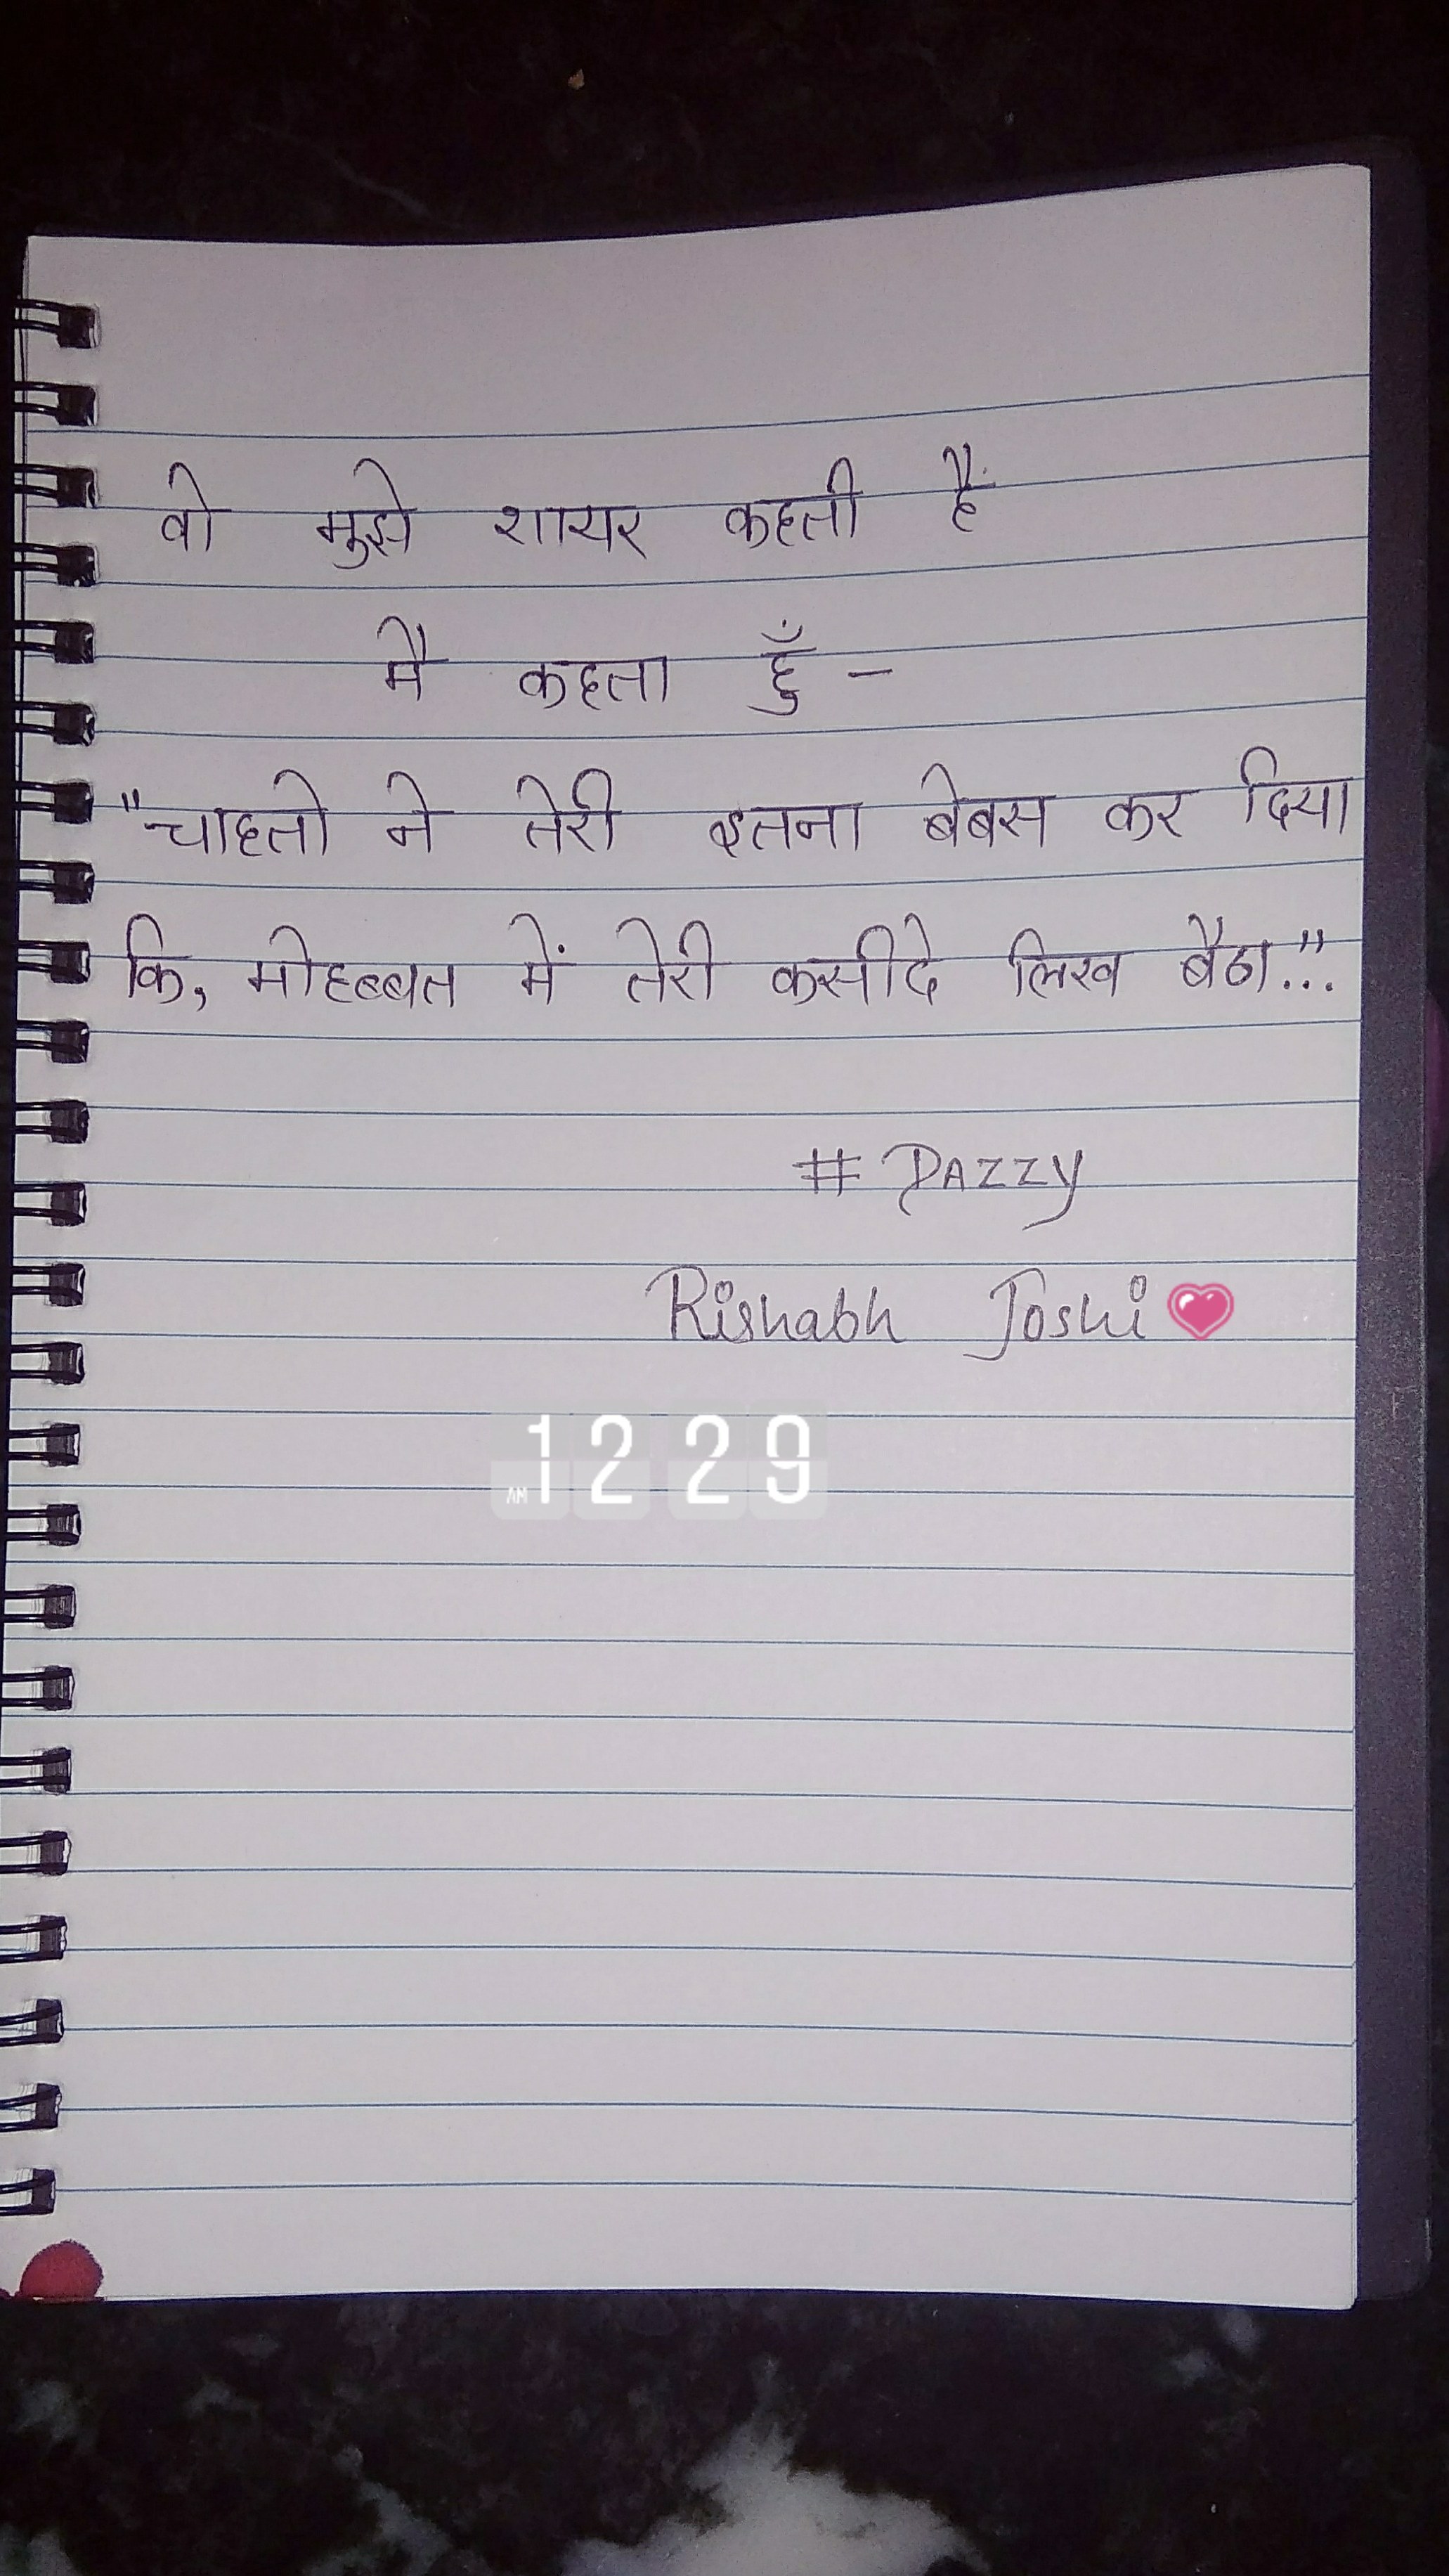 वो मुझे शायर कहती हैं
मै कहता हुँ -
"चाहतो ने तेरी इतना बेबस कर दिया
कि, मोहब्बत में तेरी कसीदे लिख बैठा..."
# DAZZY
Rishabh Joshi
AM 12 29